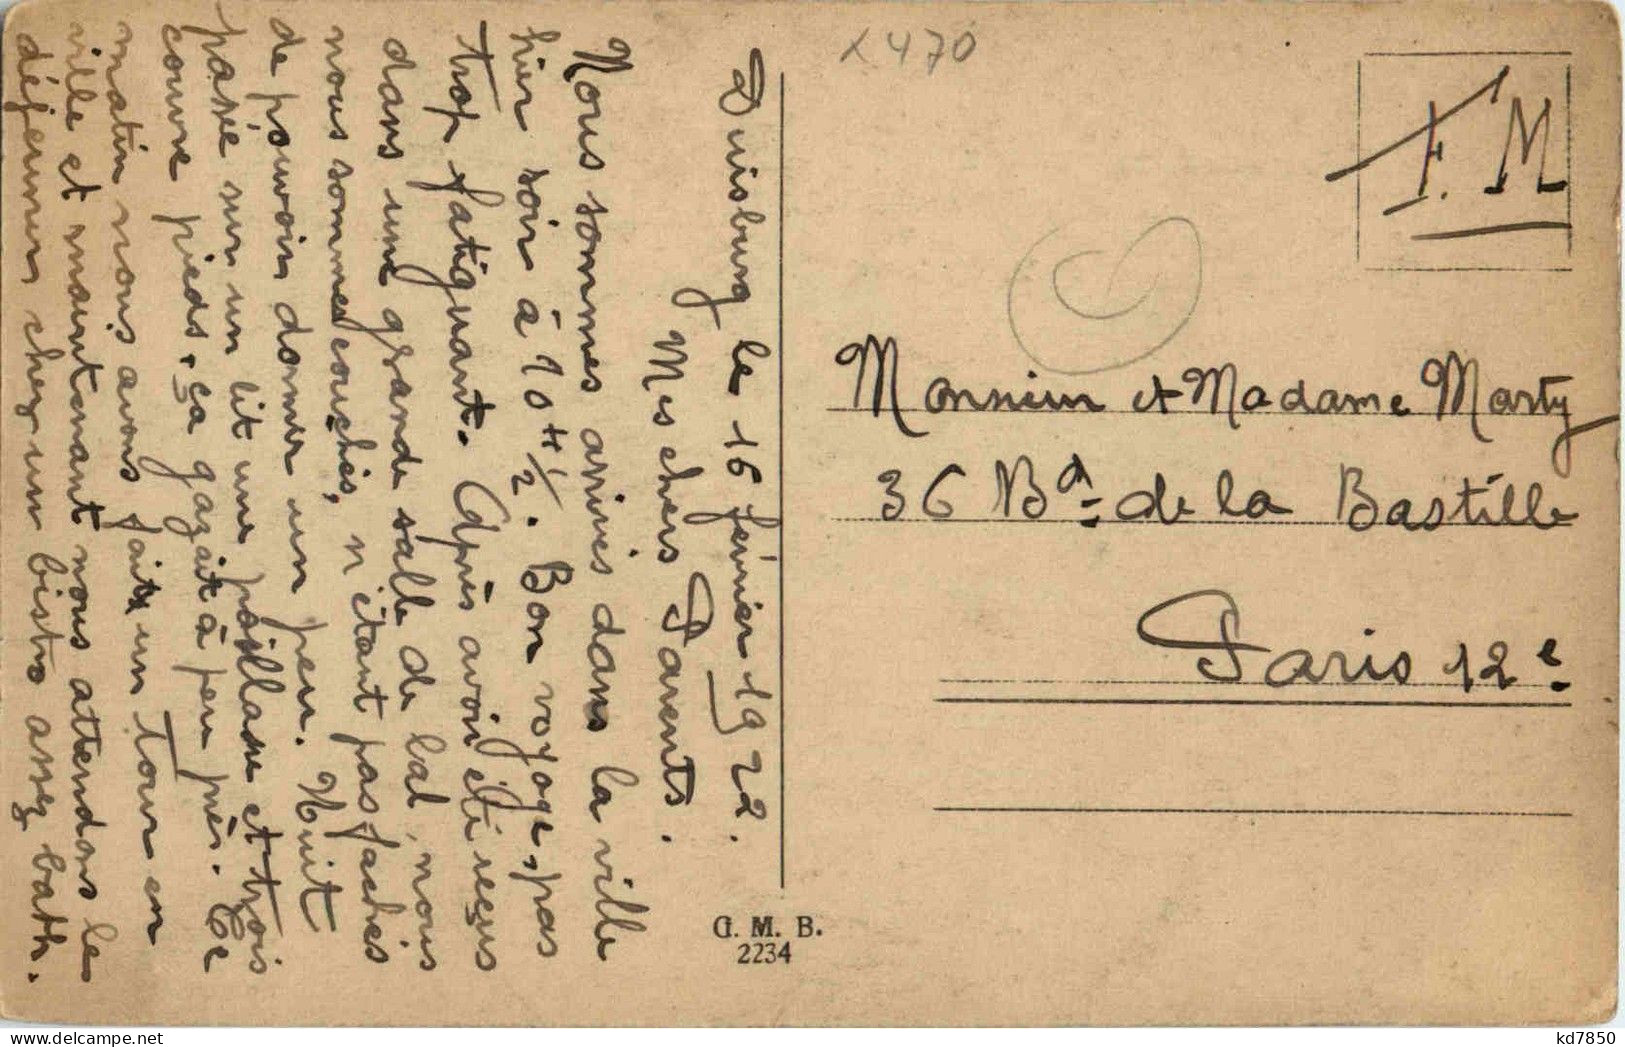 Duisburg le 16 février 1922.
Mes chers Parents.
Nous sommes arrivés dans la ville
hier soir à 10 H 1/2. Bon voyage, pas
trop fatiguant. Après avoir été reçus
dans une grande salle de bal, nous
nous sommes couchés, n'étant pas fachés
de pouvoir dormir un peu. Nuit
passée sur un lit une paillasse et trois
couvre pieds. ça gazait à peu près. Ce
matin nous avons fait un tour en
ville et maintenant nous attendons le
déjeuner chez un bistro assez bath.
x 470
F. M
Monsieur et Madame Marty
36 Bd de la Bastille
Paris 12e
G. M. B.
2234
kd7850